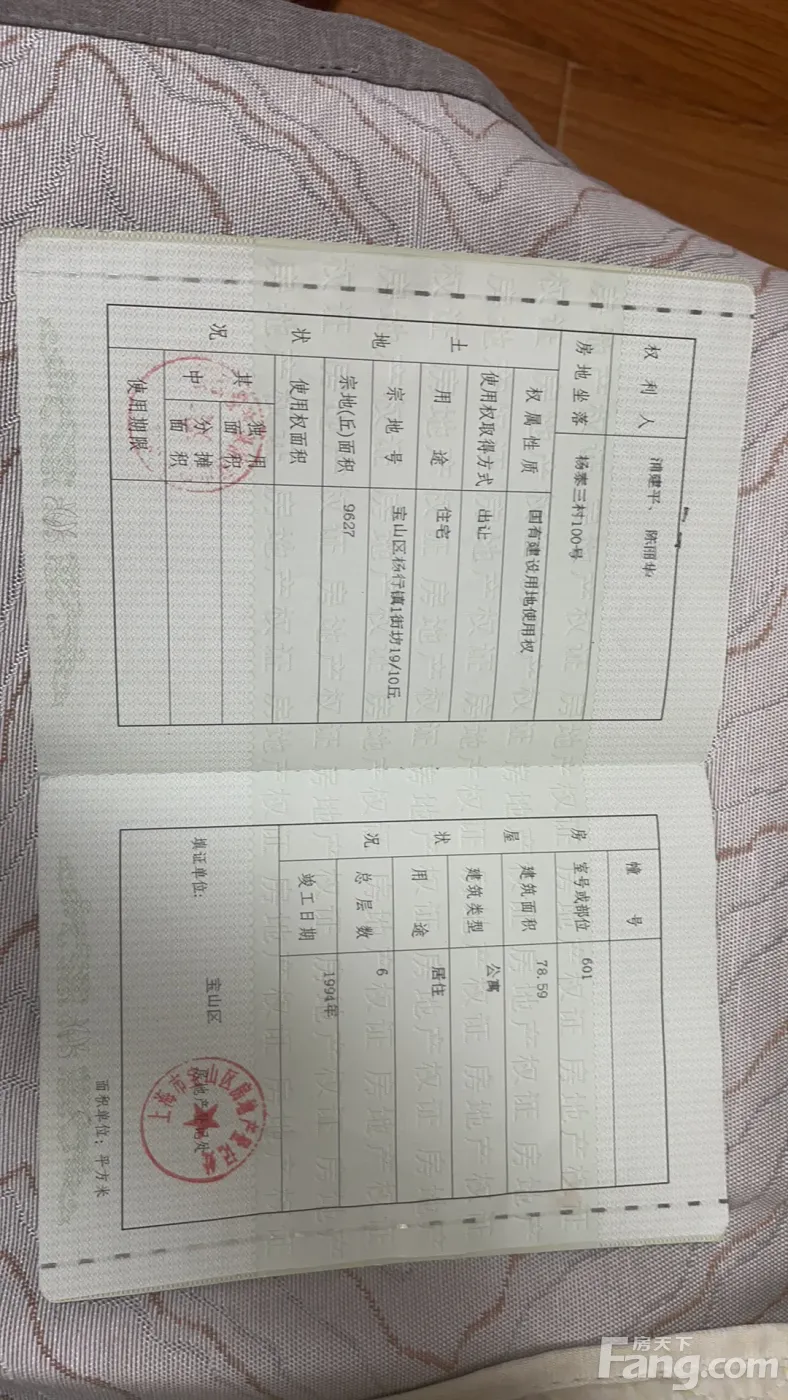 权利人 浦建平、陈丽华
房地坐落 杨泰三村100号
土地状况
权属性质 国有建设用地使用权
使用权取得方式 出让
用途 住宅
宗地号 宝山区杨行镇1街坊19/10丘
宗地(丘)面积 9627
使用权面积
其中 独用面积
分摊面积
使用期限
幢号
房屋状况
室号或部位 601
建筑面积 78.59
建筑类型 公寓
用途 居住
总层数 6
竣工日期 1994年
填证单位: 宝山区
房地产登记处
上海市宝山区房地产登记处
面积单位:平方米
房天下
Fang.com